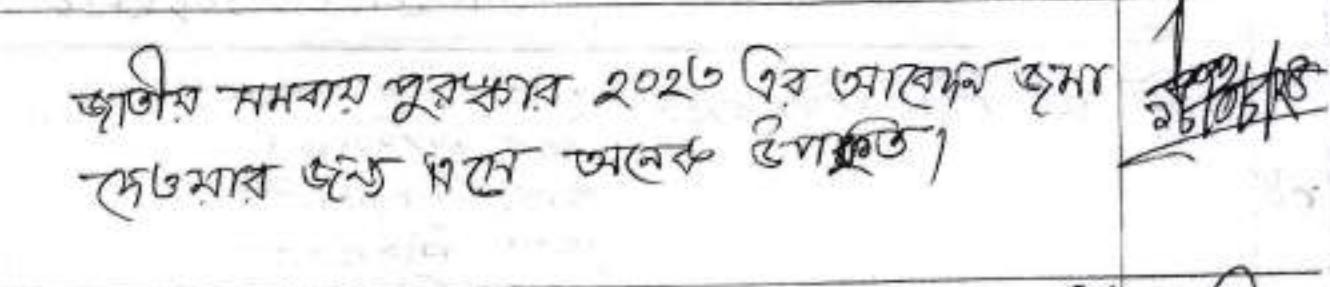 জাতীয় সমবায় পুরস্কার ২০২৩ এর আবেদন জমা
দেওয়ার জন্য এসে অনেক উপকৃত।